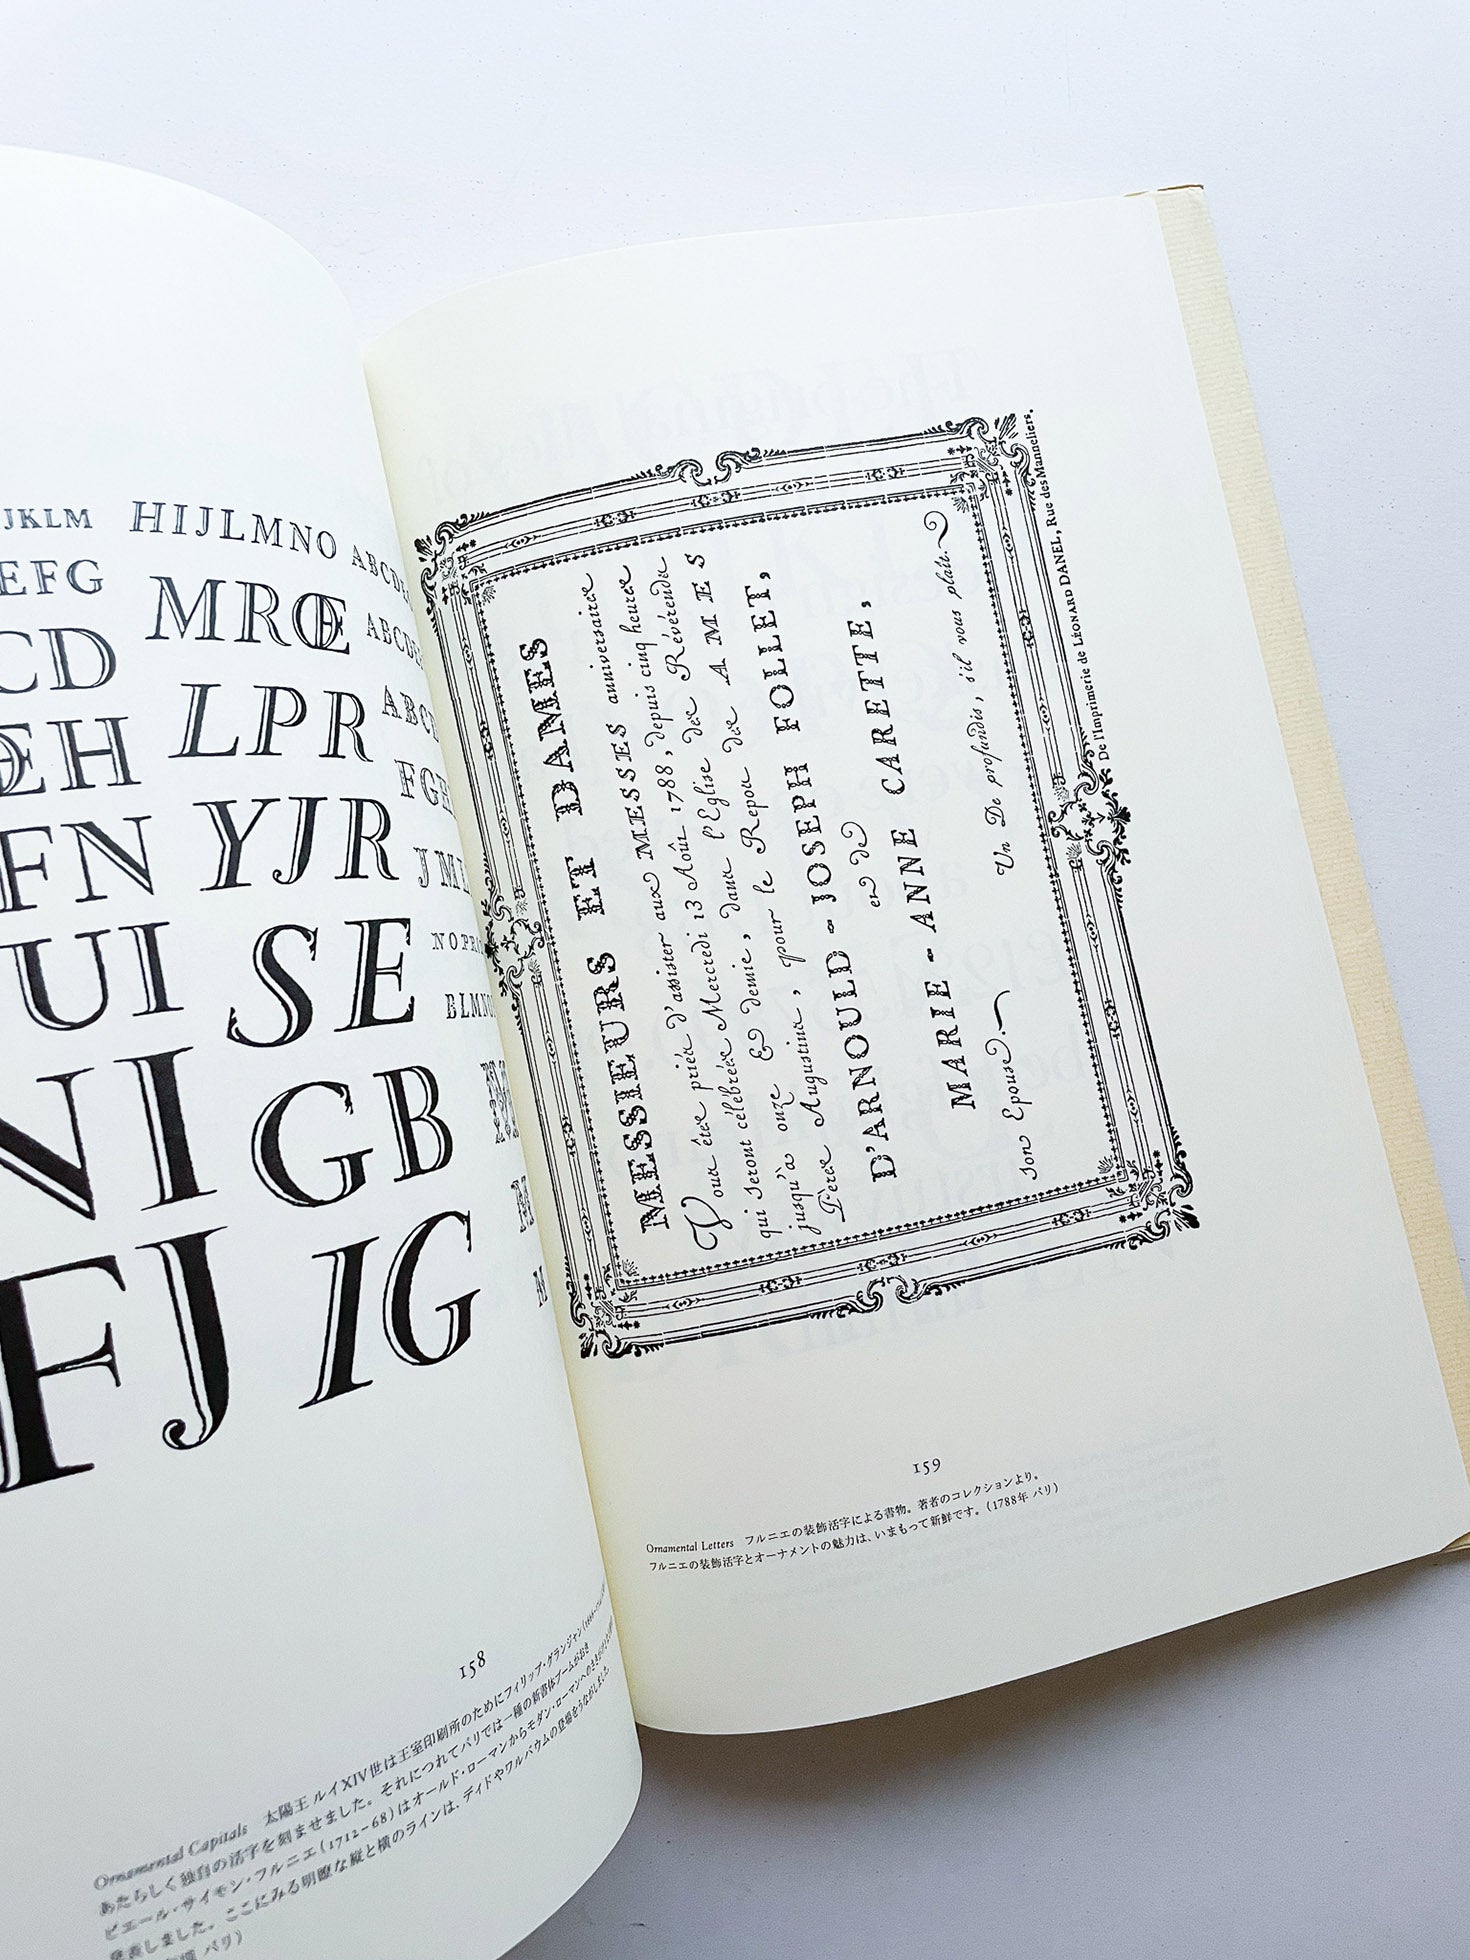 JKLM HIJLMNO
EFG MRŒ
CD LPR
EH YJR
FN SE
UI GB
NI IG
FJ
NOPR
BLMNO
158
Ornamental Capitals 太陽王 ルイXIV世は王室印刷所のためにフィリップ・グランジャン
あたらしく独自の活字を刻ませました。それにつれてパリでは一種の新書体ブームがおき
ピエール・サイモン・フルニエ(1712–68)はオールド・ローマンからモダン・ローマンへのさきがけとなる
発表しました。ここにみる明瞭な縦と横のラインは、ディドやワルバウムの登場をうながしました。
パリ)
MESSIEURS ET DAMES
Vous êtes priés d'assister aux MESSES anniversaires
qui seront célébrées Mercredi 13 Août 1788, depuis cinq heures
jusqu'à onze & demie, dans l'Eglise des Révérends
Pères Augustins, pour le Repos des AMES
D'ARNOULD-JOSEPH FOLLET,
en de
MARIE-ANNE CARETTE,
son Epouse.
Un De profundis, s'il vous plaît.
De l'Imprimerie de LÉONARD DANEL, Rue des Manneliers.
159
Ornamental Letters フルニエの装飾活字による書物。著者のコレクションより。
フルニエの装飾活字とオーナメントの魅力は、いまもって新鮮です。(1788年 パリ)